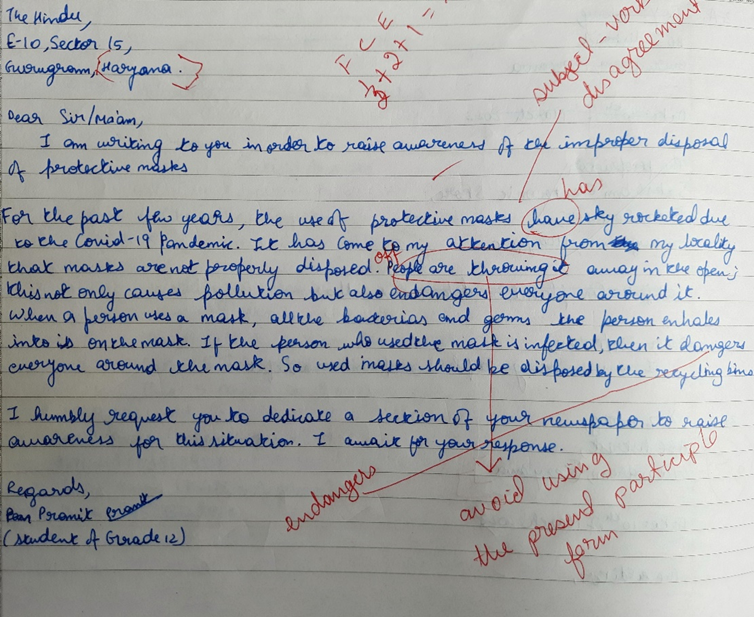 The Hindu,
E-10, Sector 15,
Gurugram, (Haryana.)
F C E
1/2 + 2 + 1 =
subject-verb
disagreement
Dear Sir/Ma'am,
I am writing to you in order to raise awareness of the improper disposal
of protective masks
has
For the past few years, the use of protective masks have sky rocketed due
to the Covid-19 Pandemic. It has come to my attention from my locality
off
that masks are not properly disposed. People are throwing it away in the open;
this not only causes pollution but also endangers everyone around it.
When a person uses a mask, all the bacterias and germs the person enhales
into is on the mask. If the person who used the mask is infected, then it dangers
everyone around the mask. So used masks should be disposed by the recycling bins
I humbly request you to dedicate a section of your newspaper to raise
awareness for this situation. I await for your response.
endangers
avoid using
the present participle
form
Regards,
Pramit
(Student of Grade 12)